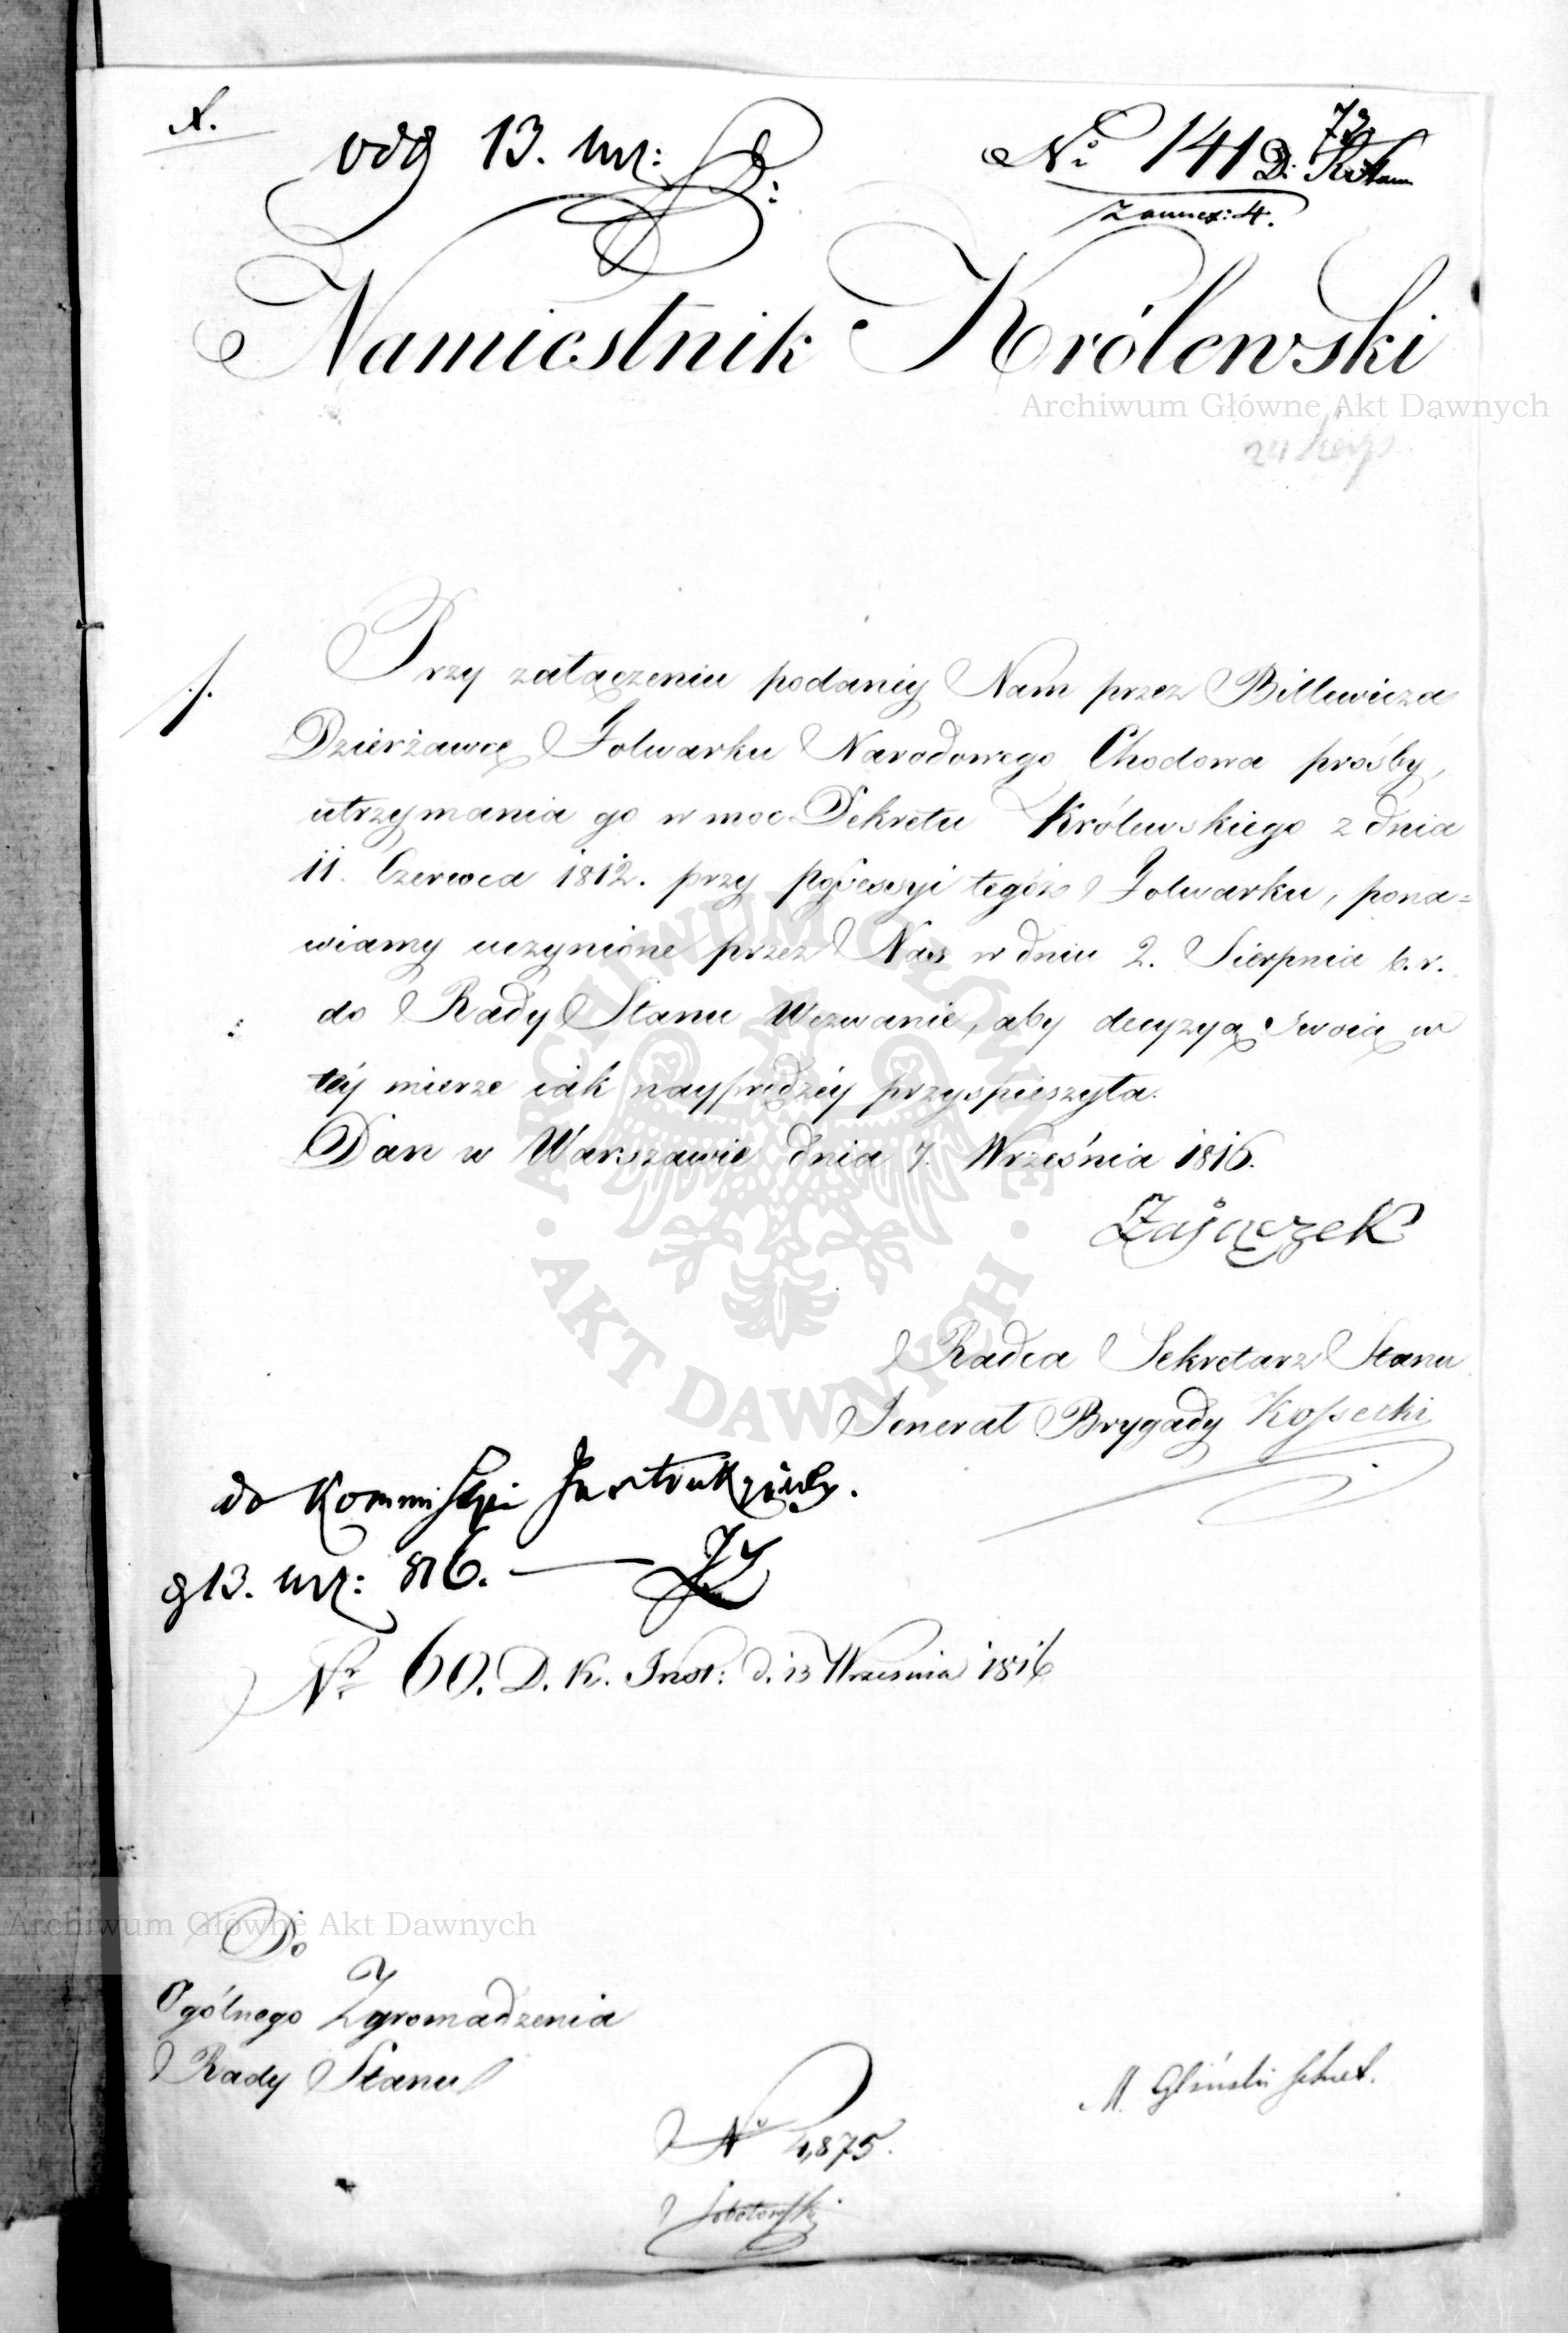 odd 13. Wrz:
No 141 D. R. Stanu
73
z annex: 4.
Namiestnik Królewski
Archiwum Główne Akt Dawnych
Przy załączeniu podaney Nam przez Billewicza
Dzierżawcę Folwarku Narodowego Chodowa prośby,
utrzymania go w moc Dekretu Królewskiego z dnia
11. Czerwca 1812. przy possessyi tegóż Folwarku, pona=
wiamy uczynione przez Nas w dniu 2. Sierpnia b. r.
do Rady Stanu Wezwanie, aby decyzyą swoią w
téy mierze iak nayprędzéy przyspieszyła.
Dan w Warszawie dnia 7. Września 1816.
Zajączek
Radca Sekretarz Stanu
Jenerał Brygady Kossecki
do Kommissyi Instrukcyiney.
d 13. Wrz: 816.
Nr 60. D. K. Inst: d. 13 Wrzesnia 1816
ARCHIWUM GŁÓWNE
AKT DAWNYCH
Archiwum Główne Akt Dawnych
Do
Ogólnego Zgromadzenia
Rady Stanu
M. Gliński Sekret.
No 4,875.